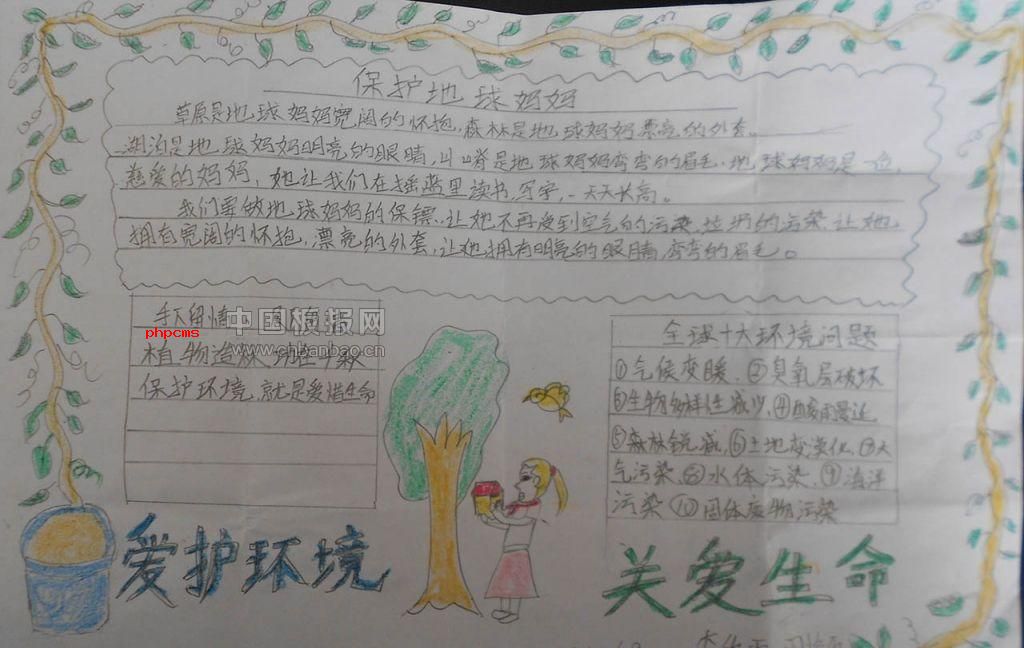 保护地球妈妈
草原是地球妈妈宽阔的怀抱,森林是地球妈妈漂亮的外套。
湖泊是地球妈妈明亮的眼睛,山脊是地球妈妈弯弯的眉毛.地球妈妈是一
慈爱的妈妈,她让我们在摇篮里读书,写字,一天天长高。
我们要做地球妈妈的保镖,让她不再受到空气的污染,垃圾的污染,让她
拥有宽阔的怀抱,漂亮的外套,让她拥有明亮的眼睛,弯弯的眉毛。
手下留情
phpcms
中国板报网
www.chbanbao.cn
植物造
保护环境,就是爱惜生命
全球十大环境问题
①气候变暖、②臭氧层破坏
③生物多样性减少、④酸雨蔓延
⑤森林锐减,⑥土地荒漠化、⑦大
气污染、⑧水体污染、⑨海洋
污染、⑩固体废物污染
爱护环境
关爱生命